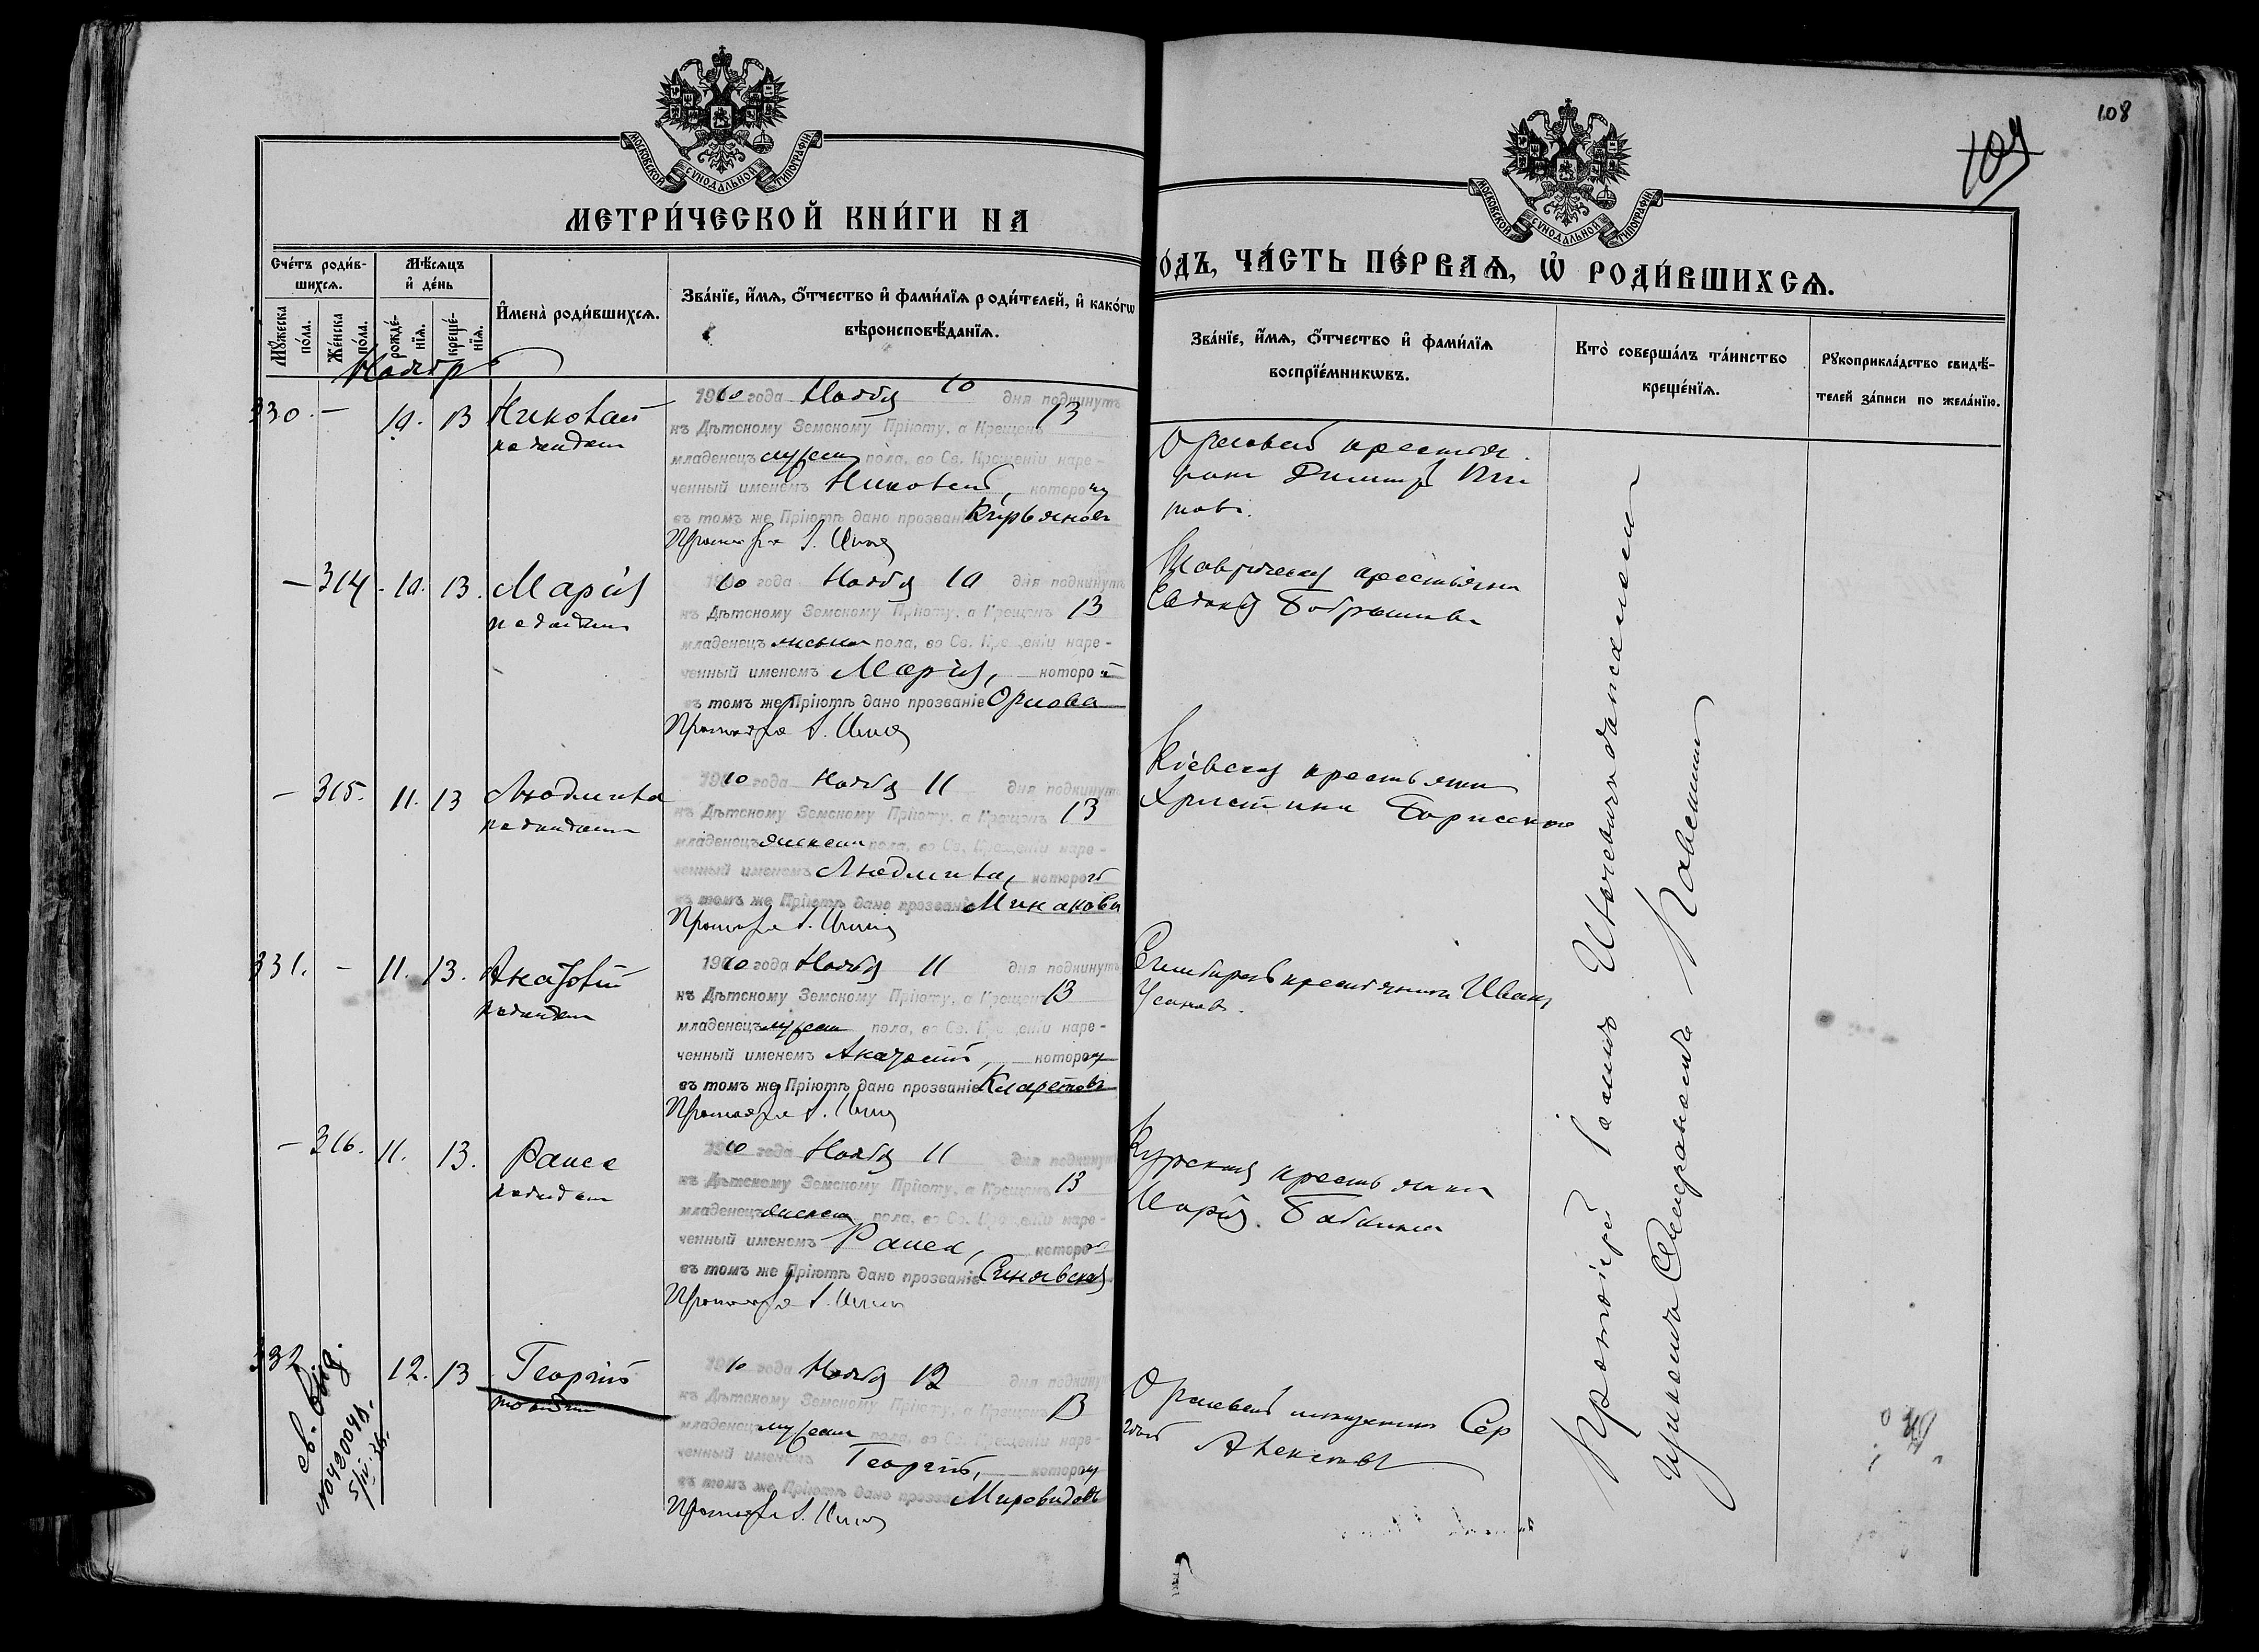 108
109
МОСКОВСКОЙ СѴНОДАЛЬНОЙ ТИПОГРАФІИ
МОСКОВСКОЙ СѴНОДАЛЬНОЙ ТИПОГРАФІИ
МЕТРИ́ЧЕСКОЙ КНИ́ГИ НА
О́ДЪ, ЧА́СТЬ ПЕ́РВАѦ, Ѡ҆ РОДИ́ВШИХСѦ.
Сче́тъ роди́в-
шихсѧ.
Мѣ́сѧцъ
и҆ де́нь
Мꙋ́жеска по́ла.
Же́нска по́ла.
рожде́-нїѧ.
креще́-нїѧ.
И҆мена̀ роди́вшихсѧ.
Зва́нїе, и҆́мѧ, ѻ҆́тчество и҆ фами́лїѧ роди́телей, и҆ како́гѡ
вѣроисповѣ́данїѧ.
Зва́нїе, и҆́мѧ, ѻ҆́тчество и҆ фами́лїѧ
воспрїе́мникѡвъ.
Кто̀ соверша́лъ та́инство
креще́нїѧ.
Рꙋкоприкла́дство свидѣ́-
телей за́писи по жела́нїю.
Ноябрь
330. — 10. 13 Николай
подкидыш
1910 года Ноября 10 дня подкинутъ
къ Дѣтскому Земскому Пріюту, а Крещенъ 13
младенецъ мужеск пола, во Св. Крещеніи наре-
ченный именемъ Николай, которому
въ томъ же Пріютѣ дано прозваніе Кирьяновъ
Орловскій крестья
нинъ Димитр
— 314. 10. 13. Марія
подкидыш
1910 года Ноября 10 дня подкинутъ
къ Дѣтскому Земскому Пріюту, а Крещенъ 13
младенецъ женск пола, во Св. Крещеніи наре-
ченный именемъ Марія, которой
въ томъ же Пріютѣ дано прозваніе Орлова
Таврическая крестьянка
Евдокія
— 315. 11. 13 Людмила
подкидыш
1910 года Ноября 11 дня подкинутъ
къ Дѣтскому Земскому Пріюту, а Крещенъ 13
младенецъ женск пола, во Св. Крещеніи наре-
ченный именемъ Людмила, которой
въ томъ же Пріютѣ дано прозваніе Минакова
Кіевская крестьянка
Христина
331. — 11. 13. Анатолій
подкидыш
1910 года Ноября 11 дня подкинутъ
къ Дѣтскому Земскому Пріюту, а Крещенъ 13
младенецъ мужеск пола, во Св. Крещеніи наре-
ченный именемъ Анатолій, которому
въ томъ же Пріютѣ дано прозваніе Кларетовъ
Симбирскъ крестьянинъ Иванъ
Усановъ.
— 316. 11. 13. Раиса
подкидыш
1910 года Ноября 11 дня подкинутъ
къ Дѣтскому Земскому Пріюту, а Крещенъ 13
младенецъ женск пола, во Св. Крещеніи наре-
ченный именемъ Раиса, которой
въ томъ же Пріютѣ дано прозваніе Синявская
Курская крестьянка
Марія Бабкина
332 12. 13 Георгій
подкидыш
1910 года Ноября 12 дня подкинутъ
къ Дѣтскому Земскому Пріюту, а Крещенъ 13
младенецъ мужеск пола, во Св. Крещеніи наре-
ченный именемъ Георгій, которому
въ томъ же Пріютѣ дано прозваніе Мировидовъ
Орловскій Сер
гѣй
св. выд.
Протоіерей Іоаннъ